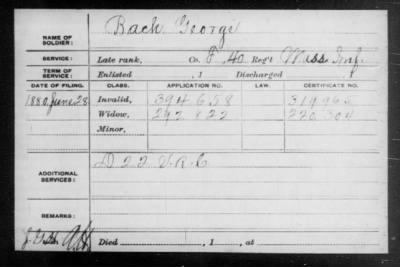 NAME OF SOLDIER: Rach George
SERVICE: Late rank, Co. F, 40 Reg't Miss Inf.
TERM OF SERVICE: Enlisted , 1 Discharged , 1
DATE OF FILING. CLASS. APPLICATION NO. LAW. CERTIFICATE NO.
1880 June 28 Invalid, 394 658
Widow, 292 822 220 304
Minor,
ADDITIONAL SERVICES: D 22 V.R.C
REMARKS:
Died , 1 , at